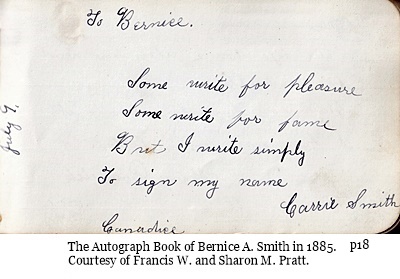 To Bernice.
Some write for pleasure
Some write for fame
But I write simply
To sign my name
Carrie Smith
Canadice
July 9.
The Autograph Book of Bernice A. Smith in 1885. p18
Courtesy of Francis W. and Sharon M. Pratt.